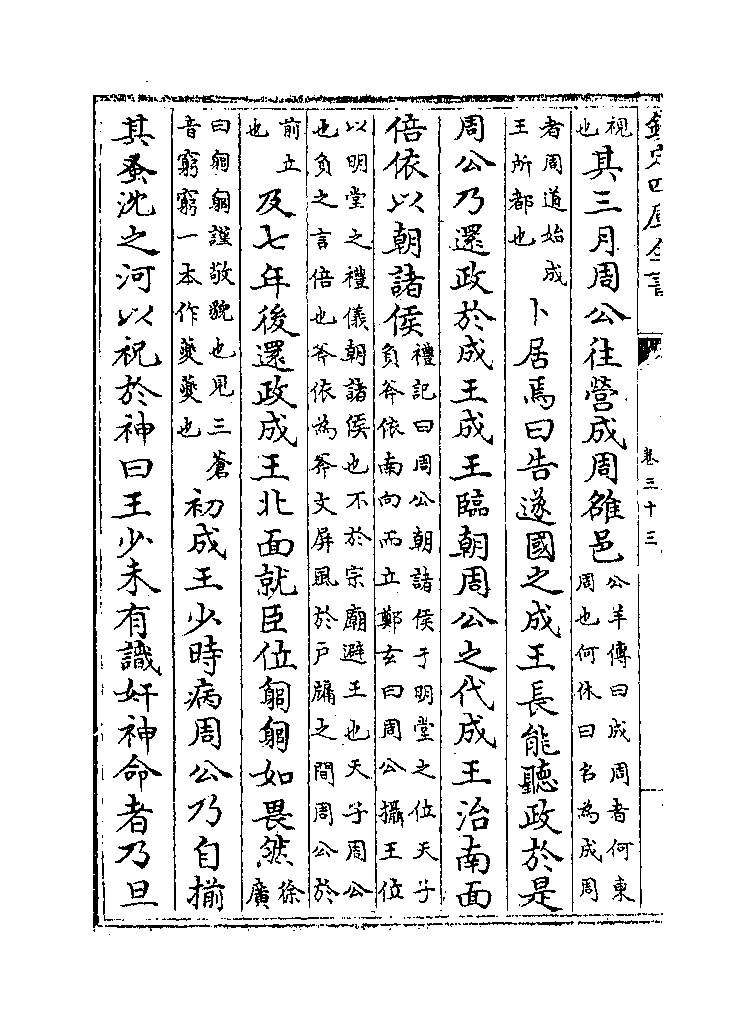 欽定四庫全書 卷三十三
視也其三月周公往營成周雒邑公羊傳曰成周者何東周也何休曰名為成周
者周道始成王所都也卜居焉曰告遂國之成王長能聽政於是
周公乃還政於成王成王臨朝周公之代成王治南面
倍依以朝諸侯禮記曰周公朝諸侯于明堂之位天子負斧依南向而立鄭玄曰周公攝王位
以明堂之禮儀朝諸侯也不於宗廟避王也天子周公也負之言倍也斧依為斧文屏風於戶牖之間周公於
前立也及七年後還政成王北面就臣位匔匔如畏然徐廣
曰匔匔謹敬貌也見三蒼音窮窮一本作夔夔也初成王少時病周公乃自揃
其蚤沈之河以祝於神曰王少未有識奸神命者乃旦